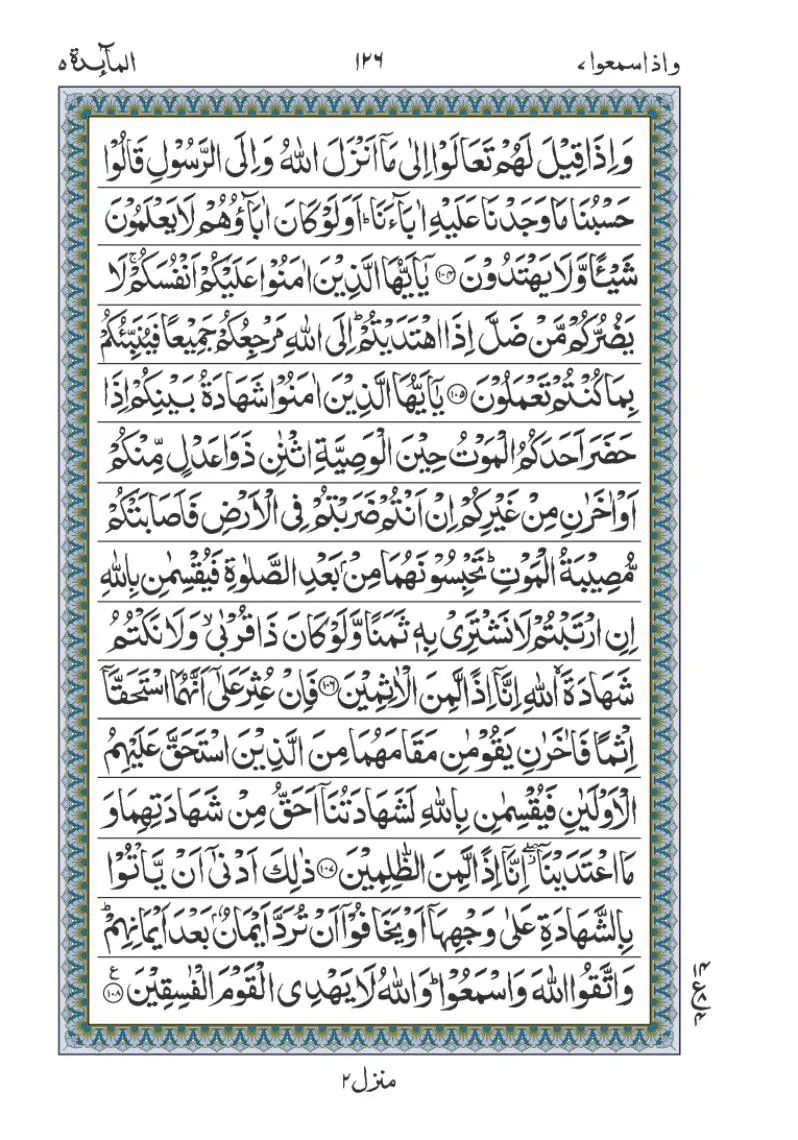 واذاسمعوا ٧ ١٢٦ المآئدة ٥
وَاِذَا قِيْلَ لَهُمْ تَعَالَوْا اِلٰى مَاۤ اَنْزَلَ اللّٰهُ وَاِلَى الرَّسُوْلِ قَالُوْا
حَسْبُنَا مَا وَجَدْنَا عَلَيْهِ اٰبَآءَنَا ؕ اَوَلَوْ كَانَ اٰبَآؤُهُمْ لَا يَعْلَمُوْنَ
شَيْـًٔا وَّلَا يَهْتَدُوْنَ ۝۱۰۴ يٰۤاَيُّهَا الَّذِيْنَ اٰمَنُوْا عَلَيْكُمْ اَنْفُسَكُمْ ۚ لَا
يَضُرُّكُمْ مَّنْ ضَلَّ اِذَا اهْتَدَيْتُمْ ؕ اِلَى اللّٰهِ مَرْجِعُكُمْ جَمِيْعًا فَيُنَبِّئُكُمْ
بِمَا كُنْتُمْ تَعْمَلُوْنَ ۝۱۰۵ يٰۤاَيُّهَا الَّذِيْنَ اٰمَنُوْا شَهَادَةُ بَيْنِكُمْ اِذَا
حَضَرَ اَحَدَكُمُ الْمَوْتُ حِيْنَ الْوَصِيَّةِ اثْنٰنِ ذَوَا عَدْلٍ مِّنْكُمْ
اَوْ اٰخَرٰنِ مِنْ غَيْرِكُمْ اِنْ اَنْتُمْ ضَرَبْتُمْ فِى الْاَرْضِ فَاَصَابَتْكُمْ
مُّصِيْبَةُ الْمَوْتِ ؕ تَحْبِسُوْنَهُمَا مِنْۢ بَعْدِ الصَّلٰوةِ فَيُقْسِمٰنِ بِاللّٰهِ
اِنِ ارْتَبْتُمْ لَا نَشْتَرِىْ بِهٖ ثَمَنًا وَّلَوْ كَانَ ذَا قُرْبٰى ۙ وَلَا نَكْتُمُ
شَهَادَةَ ۙ اللّٰهِ اِنَّاۤ اِذًا لَّمِنَ الْاٰثِمِيْنَ ۝۱۰۶ فَاِنْ عُثِرَ عَلٰۤى اَنَّهُمَا اسْتَحَقَّاۤ
اِثْمًا فَاٰخَرٰنِ يَقُوْمٰنِ مَقَامَهُمَا مِنَ الَّذِيْنَ اسْتَحَقَّ عَلَيْهِمُ
الْاَوْلَيٰنِ فَيُقْسِمٰنِ بِاللّٰهِ لَشَهَادَتُنَاۤ اَحَقُّ مِنْ شَهَادَتِهِمَا وَ
مَا اعْتَدَيْنَاۤ ۖ اِنَّاۤ اِذًا لَّمِنَ الظّٰلِمِيْنَ ۝۱۰۷ ذٰلِكَ اَدْنٰۤى اَنْ يَّاْتُوْا
بِالشَّهَادَةِ عَلٰى وَجْهِهَاۤ اَوْ يَخَافُوْۤا اَنْ تُرَدَّ اَيْمَانٌۢ بَعْدَ اَيْمَانِهِمْ ؕ
وَاتَّقُوا اللّٰهَ وَاسْمَعُوْا ؕ وَاللّٰهُ لَا يَهْدِى الْقَوْمَ الْفٰسِقِيْنَ ۝۱۰۸ ع
منزل ٢